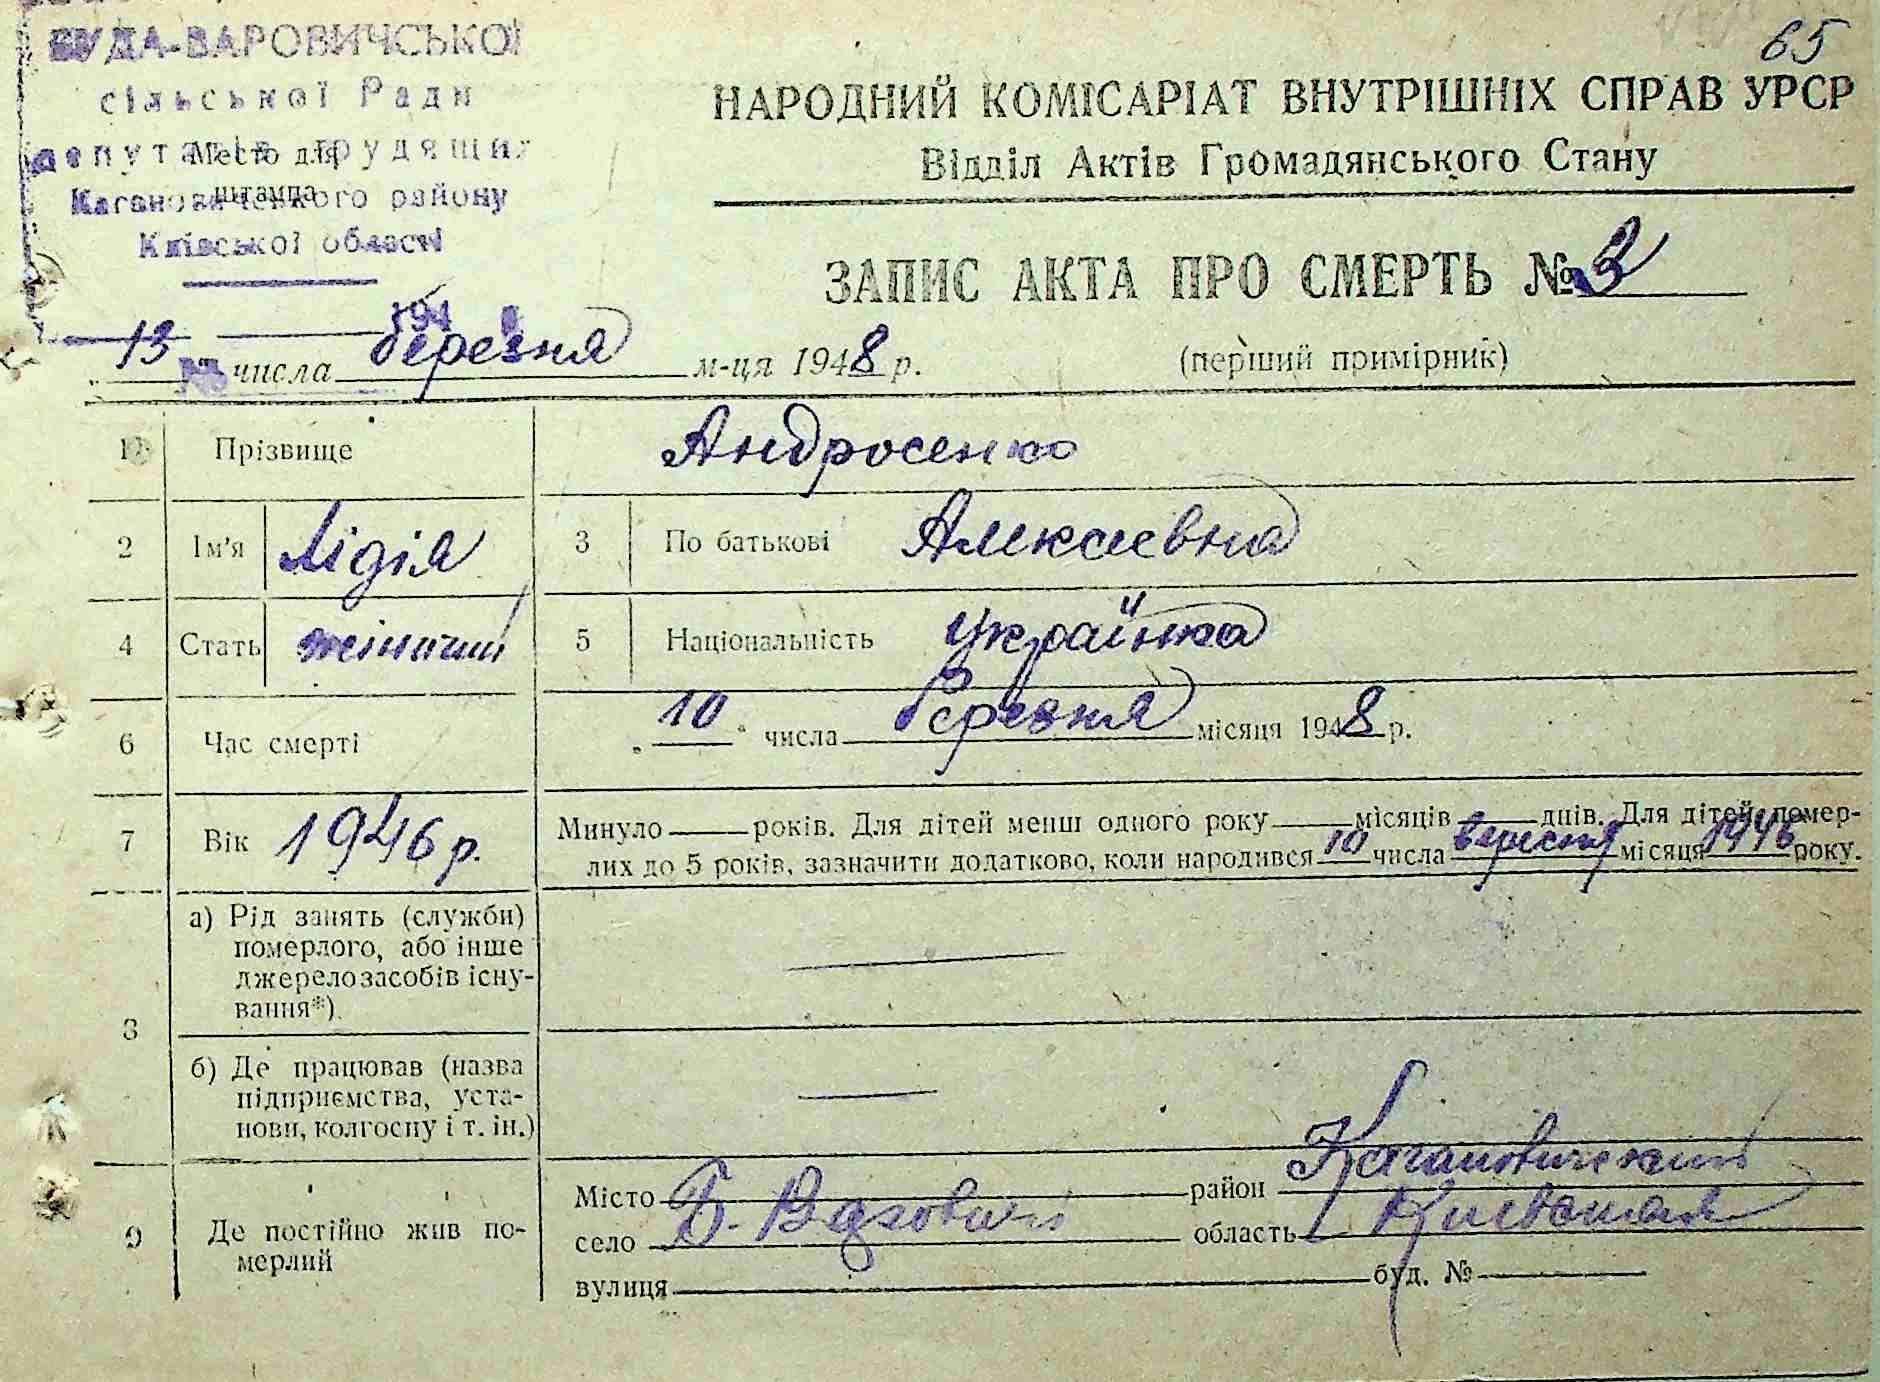 65
БУДА-ВАРОВИЧСЬКОЇ
сільської Ради
депутатів трудящих
Место для
штампа
Кагановичського району
Київської області
НАРОДНИЙ КОМІСАРІАТ ВНУТРІШНІХ СПРАВ УРСР
Відділ Актів Громадянського Стану
ЗАПИС АКТА ПРО СМЕРТЬ № 3
194
13 числа березня м-ця 1948 р.
(перший примірник)
1 Прізвище Андросенко
2 Ім'я Лідія 3 По батькові Алексеевна
4 Стать жіночий 5 Національність українка
6 Час смерті „10" числа березня місяця 1948 р.
7 Вік 1946 р. Минуло років. Для дітей менш одного року місяців днів. Для дітей, помер-
лих до 5 років, зазначити додатково, коли народився 10 числа вересня місяця 1946 року.
8 а) Рід занять (служби)
померлого, або інше
джерело засобів існу-
вання*)
б) Де працював (назва
підприємства, уста-
нови, колгоспу і т. ін.)
9 Де постійно жив по-
мерлий
Місто район Кагановический
село Б. Варовичи область Киевская
вулиця буд. №